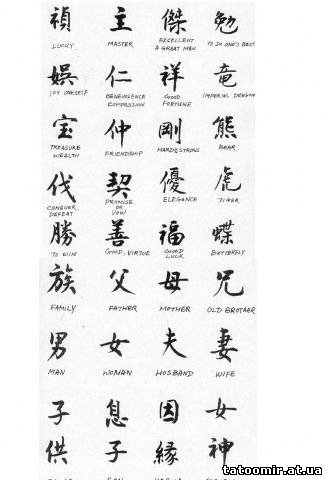 禎 主 傑 勉
LUCKY MASTER EXCELLENT A GREAT MAN TO DO ONE'S BEST
娯 仁 祥 竜
JOY ONESELF BENEVOLENCE COMPASSION GOOD FORTUNE IMPERIAL DRAGON
宝 仲 剛 熊
TREASURE WEALTH FRIENDSHIP HARD & STRONG BEAR
伐 契 優 虎
CONQUER, DEFEAT PROMISE OR VOW ELEGANCE TIGER
勝 善 福 蝶
TO WIN GOOD, VIRTUE GOOD LUCK BUTTERFLY
族 父 母 兄
FAMILY FATHER MOTHER OLD BROTHER
男 女 夫 妻
MAN WOMAN HUSBAND WIFE
子 息 因 女
供 子 縁 神
tatoomir.at.ua